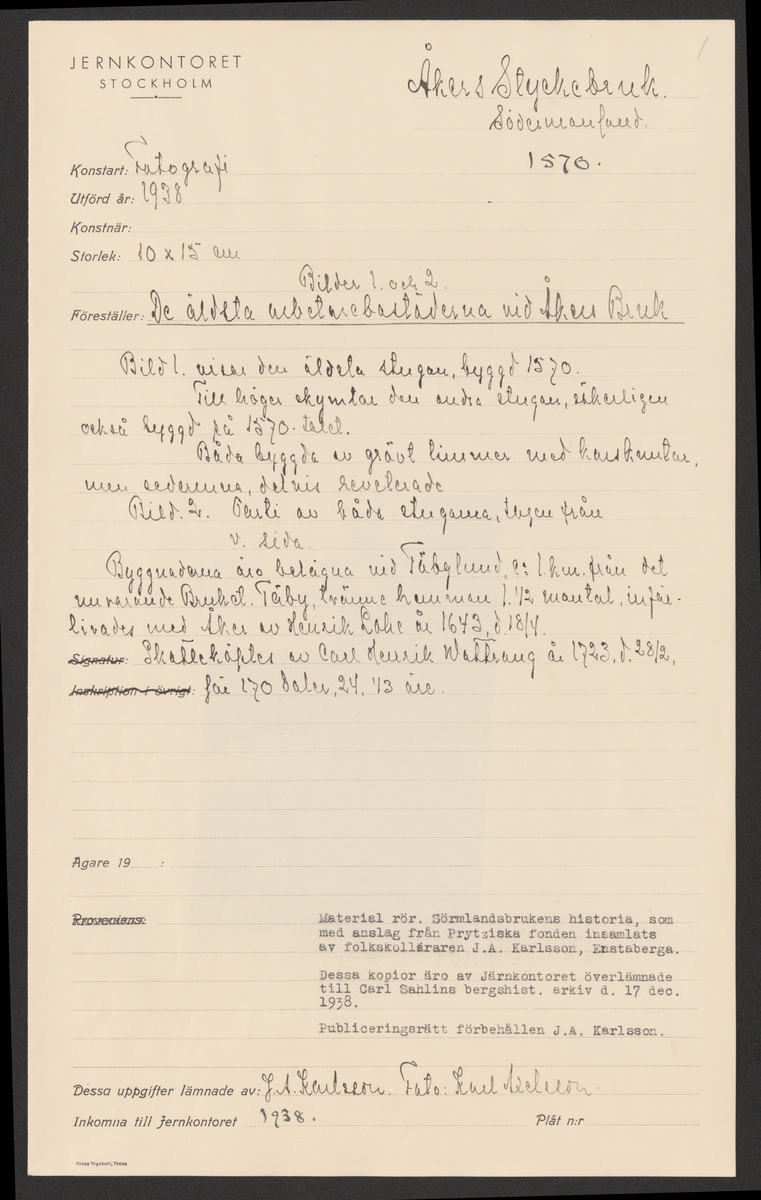 JERNKONTORET
STOCKHOLM
Åkers Styckebruk.
Södermanland.
1570.
Konstart: Fotografi
Utförd år: 1938
Konstnär:
Storlek: 10 x 15 cm
Bilder 1. och 2.
Föreställer: De äldsta arbetarebostäderna vid Åkers Bruk
Bild 1. visar den äldsta stugan, byggd 1570.
Till höger skymtar den andra stugan, säkerligen
också byggd på 1570-talet.
Båda byggda av grävt timmer med korsknutar,
men sedermera, delvis reveterade
Bild. 2. Parti av båda stugorna, tagen från
v. sida.
Byggnaderna äro belägna vid Täbylund, c:a 1. km. från det
nuvarande Bruket. Täby, tvänne hemman 1. 1/2 mantal, införlivades
med Åker av Henrik Lohe år 1643, d. 18/4.
Signatur: Skatteköptes av Carl Henrik Wattrang år 1723, d. 28/2,
Inskription i övrigt: för 170 daler, 24, 1/3 öre.
Ägare 19 :
Proveniens:
Material rör. Sörmlandsbrukens historia, som
med anslag från Prytziska fonden insamlats
av folkskolläraren J.A. Karlsson, Enstaberga.
Dessa kopior äro av Järnkontoret överlämnade
till Carl Sahlins bergshist. arkiv d. 17 dec.
1938.
Publiceringsrätt förbehållen J.A. Karlsson.
Dessa uppgifter lämnade av: J.A. Karlsson. Foto: Karl Axelsson.
Inkomna till Jernkontoret 1938.
Plåt n:r
Trosa Tryckeri, Trosa